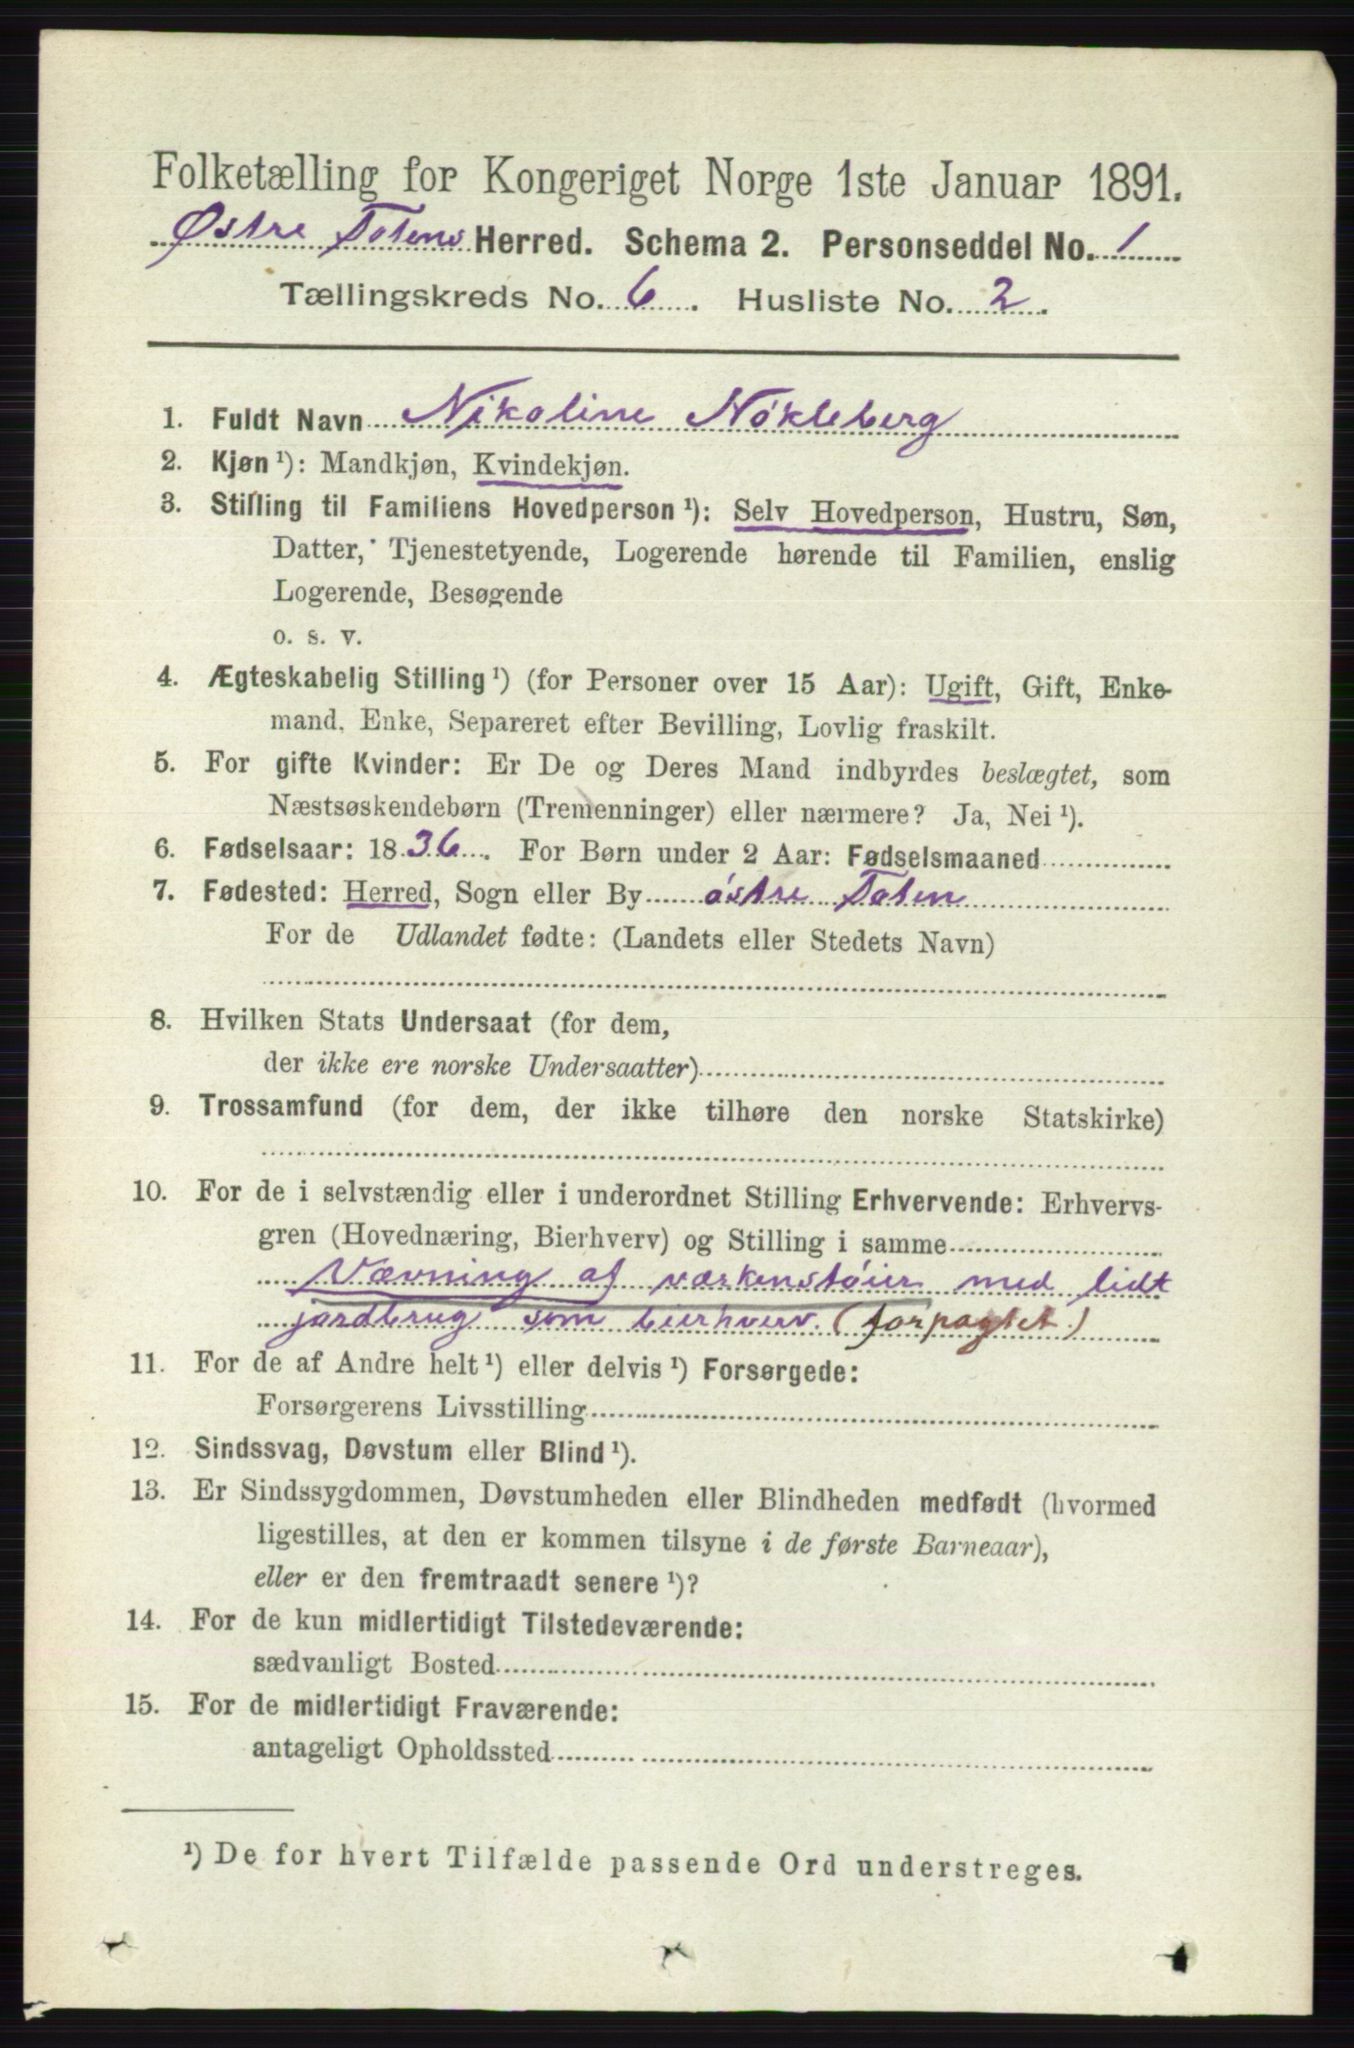 Folketælling for Kongeriget Norge 1ste Januar 1891.
Østre Totens Herred. Schema 2. Personseddel No. 1
Tællingskreds No. 6. Husliste No. 2.
1. Fuldt Navn Nikoline Nökleberg
2. Kjøn ¹): Mandkjøn, Kvindekjøn.
3. Stilling til Familiens Hovedperson ¹): Selv Hovedperson, Hustru, Søn,
Datter, Tjenestetyende, Logerende hørende til Familien, enslig
Logerende, Besøgende
o. s. v.
4. Ægteskabelig Stilling ¹) (for Personer over 15 Aar): Ugift, Gift, Enke-
mand, Enke, Separeret efter Bevilling, Lovlig fraskilt.
5. For gifte Kvinder: Er De og Deres Mand indbyrdes beslægtet, som
Næstsøskendebørn (Tremenninger) eller nærmere? Ja, Nei ¹).
6. Fødselsaar: 1836. For Børn under 2 Aar: Fødselsmaaned
7. Fødested: Herred, Sogn eller By östre Toten
For de Udlandet fødte: (Landets eller Stedets Navn)
8. Hvilken Stats Undersaat (for dem,
der ikke ere norske Undersaatter)
9. Trossamfund (for dem, der ikke tilhøre den norske Statskirke)
10. For de i selvstændig eller i underordnet Stilling Erhvervende: Erhvervs-
gren (Hovednæring, Bierhverv) og Stilling i samme
Vævning af værkenstöier med lidt
jordbrug som bierhverv. (forpagtet)
11. For de af Andre helt ¹) eller delvis ¹) Forsørgede:
Forsørgerens Livsstilling
12. Sindssvag, Døvstum eller Blind ¹).
13. Er Sindssygdommen, Døvstumheden eller Blindheden medfødt (hvormed
ligestilles, at den er kommen tilsyne i de første Barneaar),
eller er den fremtraadt senere ¹)?
14. For de kun midlertidigt Tilstedeværende:
sædvanligt Bosted
15. For de midlertidigt Fraværende:
antageligt Opholdssted
¹) De for hvert Tilfælde passende Ord understreges.